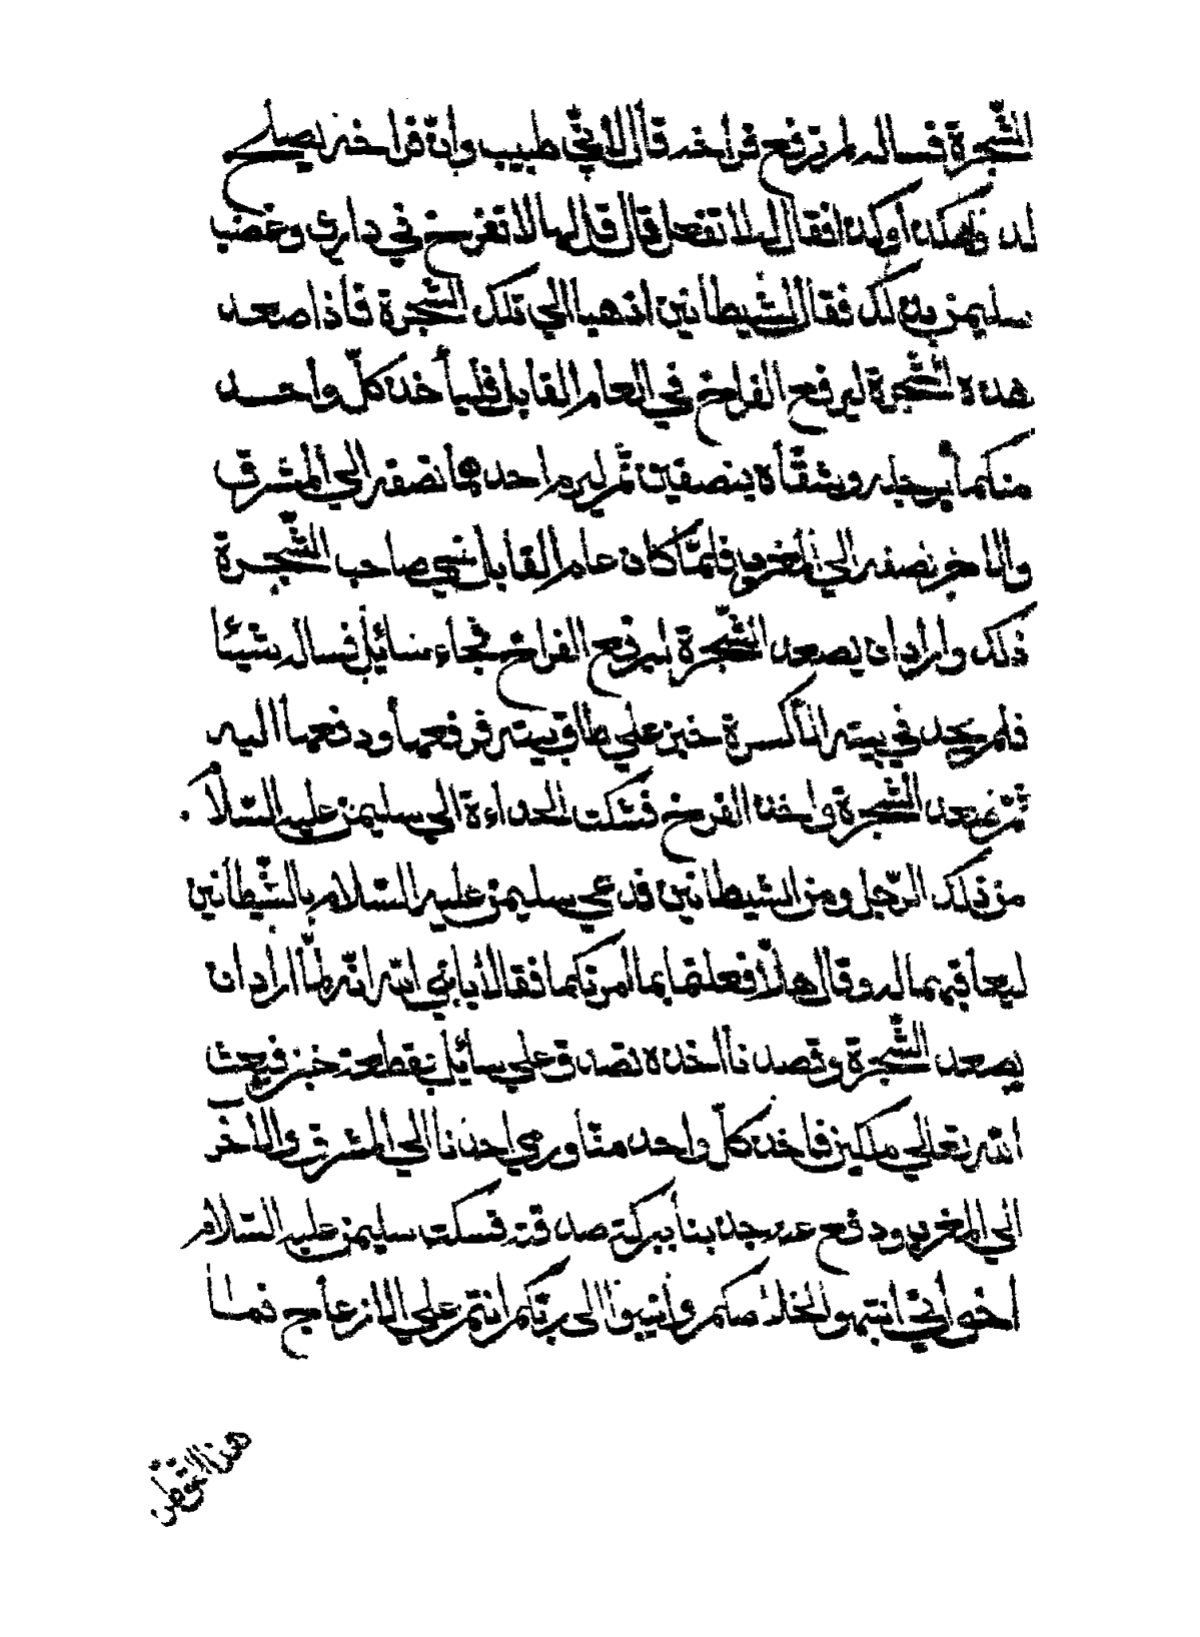 الشّجرة فساله لم ترفع فراخه قال لأنّي طبيب وانّ فراخه يصلح
لد وهكذا وكذا فقال له لا تفعل قال قل لها لا تفرخ في داري وغضب
سليمن بذلك فقال لشيطانين اذهبا الي تلك الشّجرة فاذا صعد
هذه الشّجرة ليرفع الفراخ في العام القابل فليأخذ كلّ واحد
منكما برجله وشقّاه بنصفين ثمّ ليرم احدكما نصفه الي المشرق
والاخر نصفه الي المغرب فلمّا كان عام القابل نسي صاحب الشّجرة
ذلك واراد ان يصعد الشّجرة ليرفع الفراخ فجاء سائل فساله شيئا
فلم يجد في بيته الا كسرة خبز علي طاق بيته فرفعها ودفعها اليه
ثمّ صعد الشّجرة واخذ الفرخ فشكت الحداءة الي سليمن عليه السّلام
من ذلك الرّجل ومن الشيطانين فدعي سليمن عليه السّلام بالشّيطانين
ليعاقبهما له وقال هلّا فعلتما بما امرتكما فقالا يا نبي الله انّه لمّا اراد ان
يصعد الشّجرة وقصدنا اخذه تصدق علي سائل بقطعة خبز فبعث
الله تعالي ملكين فاخذ كلّ واحد منّا ورمي احدنا الي المشرق والاخر
الي المغرب ودفع عنه جدبنا ببركة صدقته فسكت سليمن عليه السّلام
اخواني انتبهوا لخلاصكم وانيبوا الي ربّكم انتم علي الانزعاج فما
هذا التّوطّن